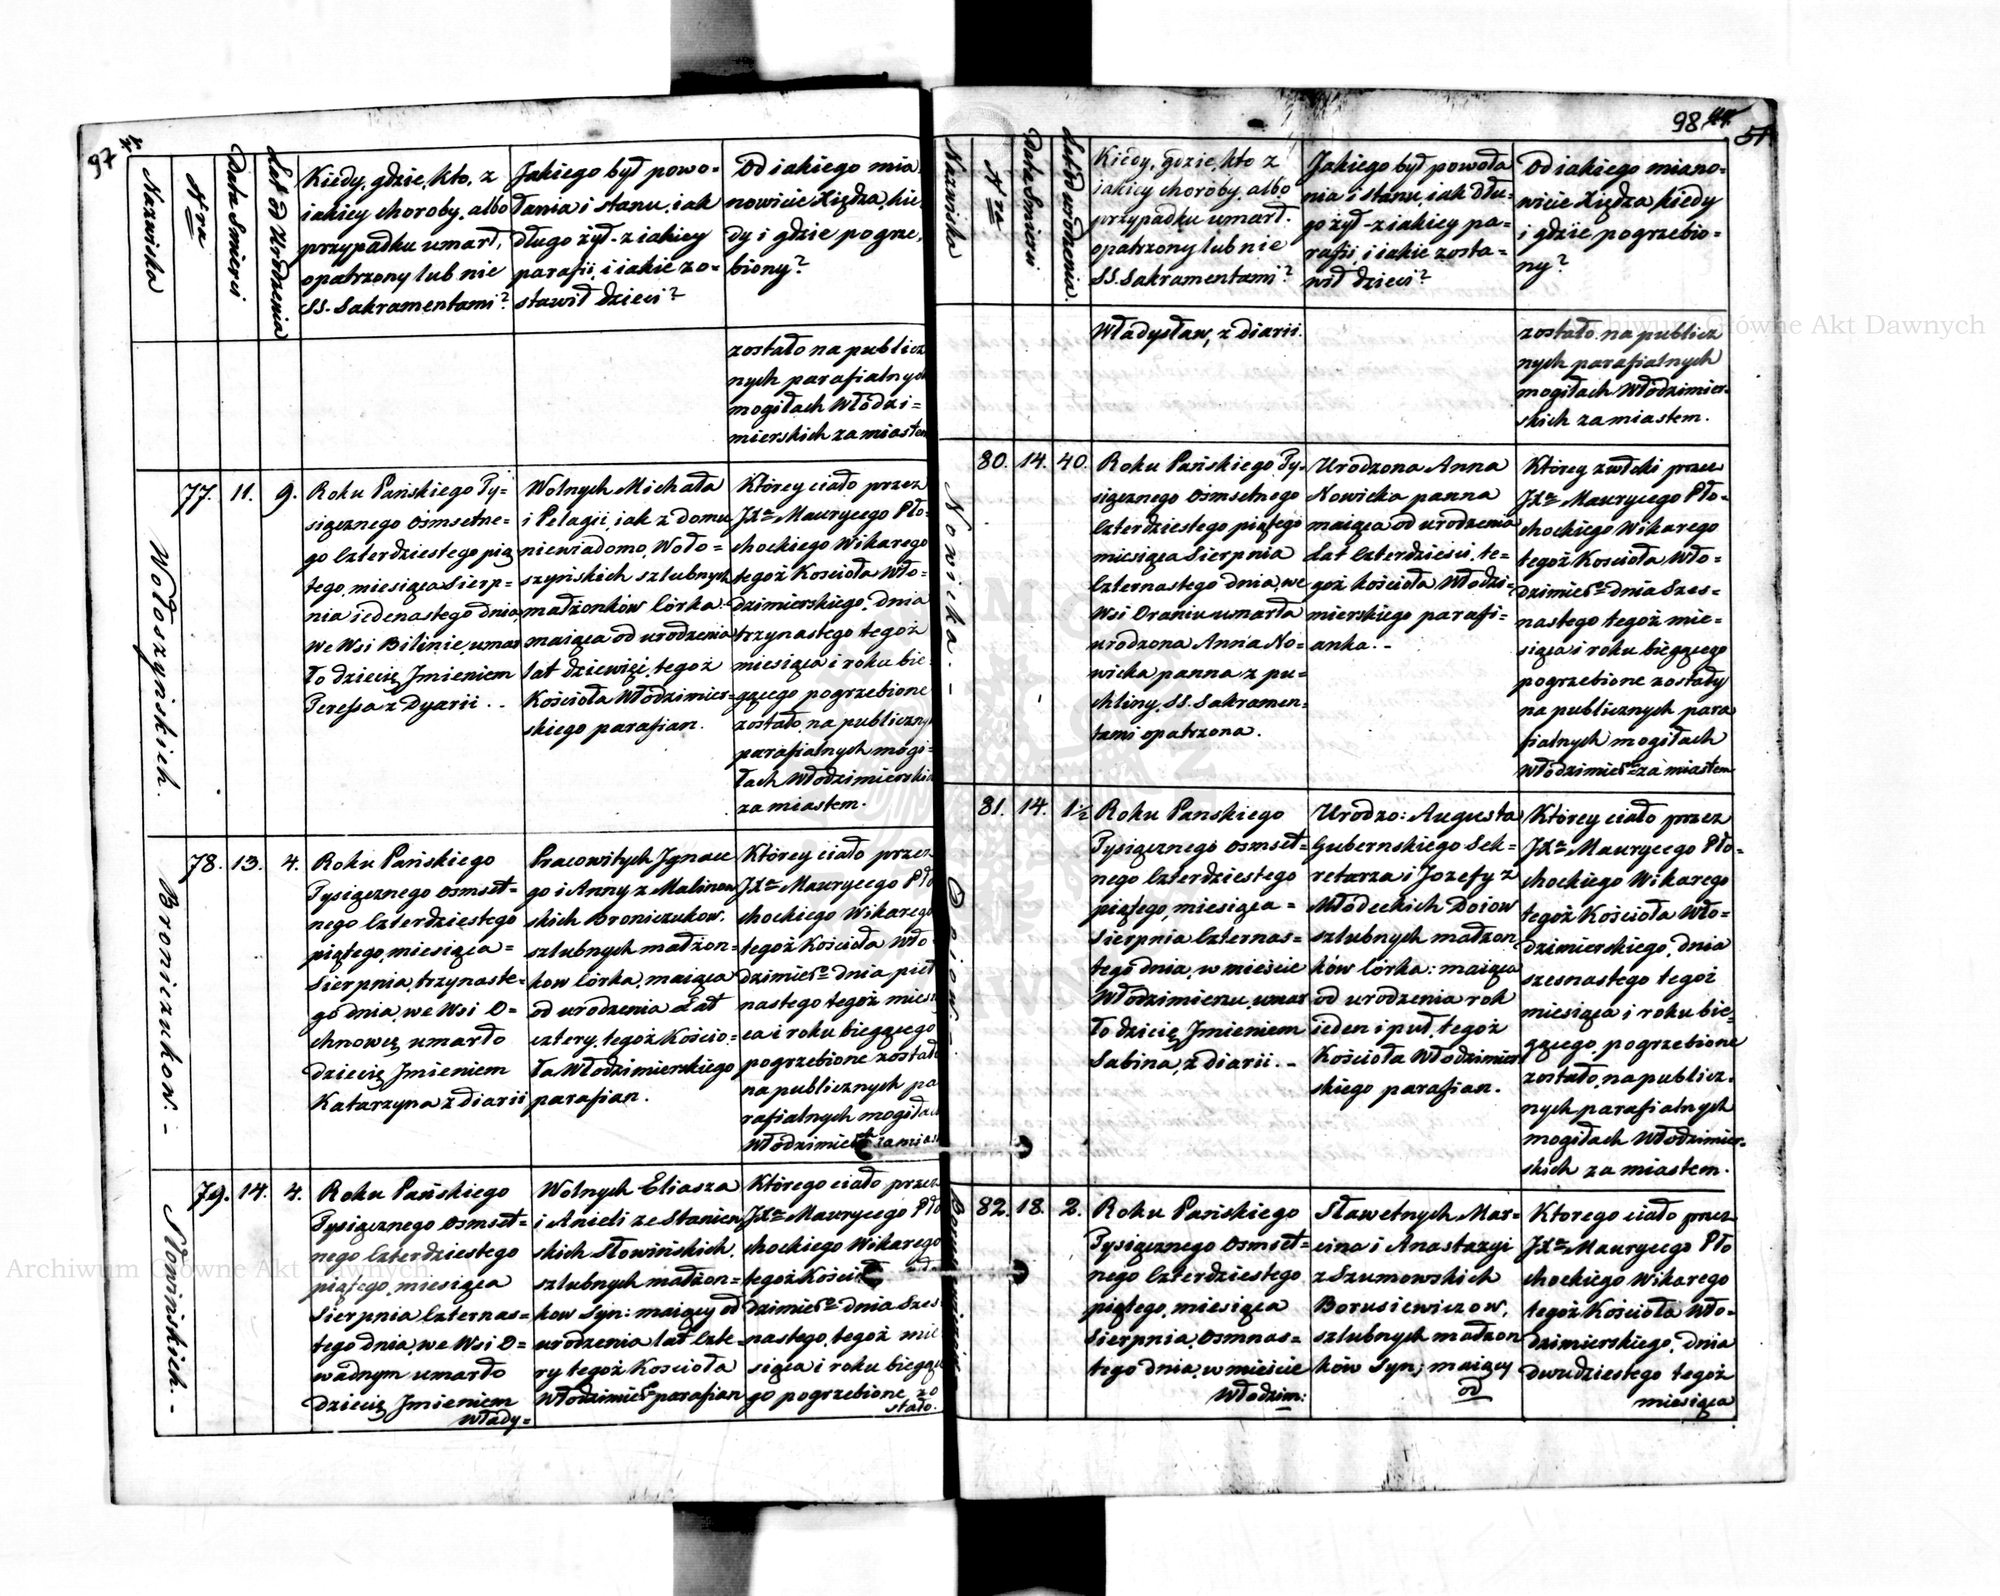 97
Nazwisko
Nra
Data Smierci
Lat od Urodzenia
Kiedy, gdzie, kto, z
iakiey choroby, albo
przypadku umarł,
opatrzony lub nie
SS. Sakramentami?
Jakiego był powo=
łania i stanu, iak
długo żył - z iakiey
parafii, i iakie zo=
stawił dzieci?
Od iakiego mia
nowicie Xiędza, kie
dy i gdzie pogrze,
biony?
zostało na publicz
nych parafialnych
mogiłach Włodzi=
mierskich za miastem
Wołoszyńskich.
77. 11. 9.
Roku Pańskiego Ty=
siącznego Osmsetne=
go Czterdziestego pią
tego, miesiąca Sierp=
nia iedenastego dnia,
we Wsi Bilinie, umar
ło dziecię Jmieniem
Teressa z Dyarii. -
Wolnych Michała
i Pelagii, iak z domu
niewiadomo, Woło=
szyńskich szlubnych
małżonków Córka.
maiąca od urodzenia
lat dziewięć, tegoż
Kościoła Włodzimier=
skiego parafian.
Którey ciało przez
JXa Maurycego Pło=
chockiego Wikarego
tegoż Kościoła Wło=
dzimierskiego, dnia
trzynastego tegoż
miesiąca i roku bie=
gącego pogrzebione
zostało, na publiczny
parafialnych mogi=
łach Włodzimierskich
za miastem.
Broniczukow. -
78. 13. 4.
Roku Pańskiego
Tysiącznego Osmset=
nego Czterdziestego
piątego, miesiąca =
Sierpnia, trzynaste=
go dnia, we Wsi O=
chnowcę umarło
dziecię Jmieniem
Katarzyna z diarii
Pracowitych Jgnace
go i Anny z Malinow
skich Broniczukow.
szlubnych małżon=
kow Córka, maiąca
od urodzenia Lat
cztery, tegoż Koscio=
ła Włodzimierskiego
parafian.
Którey ciało przez
JXa Maurycego Pło
chockiego Wikarego
tegoż Kościoła Wło
dzimiego dnia pięt
nastego tegoż miesi
ca i roku bieggcego
pogrzebione zostało
na publicznych pa
rafialnych mogiłach
Słowińskich. -
79. 14. 4.
Roku Pańskiego
Tysiącznego Osmset=
nego Czterdziestego
piątego, miesiąca
Sierpnia Czternas=
tego dnia, we Wsi O=
wadnym umarło
dziecię Jmieniem
Włady=
Wolnych Eliasza
i Anieli ze Stanien
skich Słowińskich,
szlubnych małżon=
kow Syn: maiący od
urodzenia lat czte=
ry tegoż Kościoła
Włodzimie: parafian
Którego ciało przez
JXa Maurycego Pło
chockiego Wikarego
tegoż Kości
dzimiego dnia Szes
nastego, tegoż mie
siąca i roku biegące
go pogrzebione zo
stało.
98
51
Nazwiska
Nra
Data Smierci
Lat od urodzenia.
Kiedy, gdzie, kto z
iakiey choroby, albo
przypadku umarł.
opatrzony lub nie
SS. Sakramentami?
Jakiego był powoła
nia i stanu, iak dłu=
go żył - z iakiey pa=
rafii, i iakie zosta=
wił dzieci?
Od iakiego miano=
wicie Xiędza, kiedy
i gdzie, pogrzebio=
ny?
Władysław, z diarii.
zostało, na publicz
nych parafialnych
mogiłach Włodzimier=
skich za miastem.
Nowicka. -
80. 14. 40.
Roku Pańskiego Ty=
siącznego Osmsetnego
Czterdziestego piątego
miesiąca Sierpnia
Czternastego dnia, we
Wsi Oraniu umarła
urodzona Anna No=
wicka panna z pu=
chliny, SS. Sakramen=
tami opatrzona.
Urodzona Anna
Nowicka panna
maiąca od urodzenia
Lat Czterdzieści, te=
goż Kościoła Włodzi=
mierskiego parafi=
anka. -
Którey zwłoki przez
JXa Maurycego Pło=
chockiego Wikarego
tegoż Kościoła Wło=
dzimiego dnia Szes=
nastego tegoż mie=
siąca i roku biegącego
pogrzebione zostały
na publicznych para
fialnych mogiłach
Włodzimiech za miastem
Doiow. -
81. 14. 1½
Roku Panskiego
Tysiącznego Osmset=
nego Czterdziestego
piątego, miesiąca =
Sierpnia Czternas=
tego dnia, w mieście
Włodzimierzu, umar
ło dziecię, Jmieniem
Sabina, z diarii. -
Urodzo: Augusta
Gubernskiego Sek=
retarza i Jozefy z
Młodeckich Doiow
szlubnych małżon
ków Córka: maiąca
od urodzenia rok
ieden i puł, tegoż
Kościoła Włodzimier
skiego parafian.
Którey ciało przez
JXa Maurycego Pło=
chockiego Wikarego
tegoż Kościoła Wło=
dzimierskiego, dnia
szesnastego tegoż
miesiąca i roku bie=
gącego, pogrzebione
zostało, na publicz.
nych parafialnych
mogiłach Włodzimier=
skich za miastem.
82. 18. 2.
Roku Pańskiego
Tysiącznego Osmset=
nego Czterdziestego
piątego, miesiąca
Sierpnia, Osmnas=
tego dnia, w mieście
Włodzim:
Sławetnych Mar=
cina i Anastazyi
z Szumowskich
Borusiewiczow,
szlubnych małżon
ków Syn; maiący
od
Ktorego ciało przez
JXa Maurycego Pło
chockiego Wikarego
tegoż Kościoła Wło=
dzimierskiego, dnia
dwudziestego tegoż
miesiąca
Archiwum Główne Akt Dawnych
Archiwum Główne Akt Dawnych